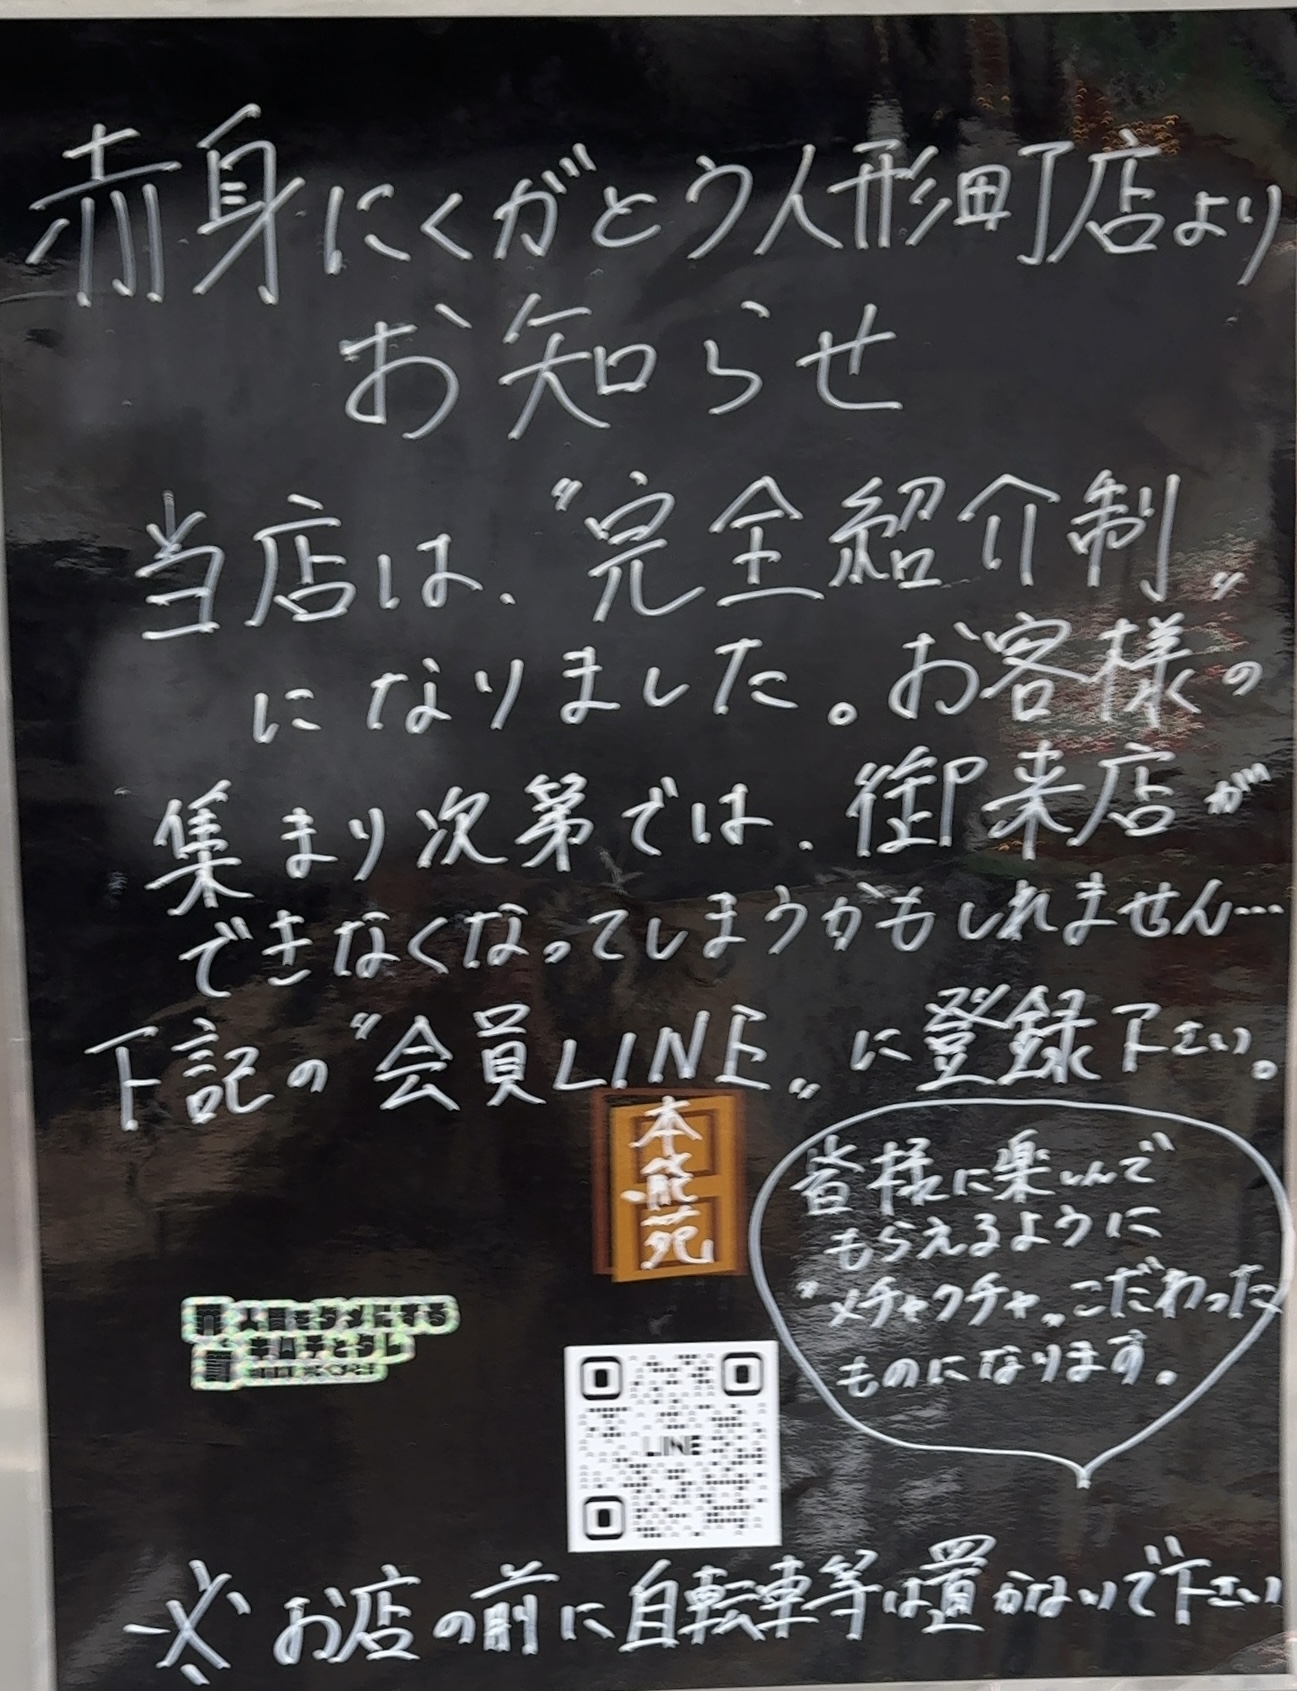 赤身にくがとう人形町店より
お知らせ
当店は、〝完全紹介制〟
になりました。お客様の
集まり次第では、御来店が
できなくなってしまうかもしれません…
下記の〝会員LINE〟に登録下さい。
本能苑
皆様に楽しんで
もらえるように
〝メチャクチャ〟こだわった
ものになります。
LINE
※お店の前に自転車等は置かないで下さい